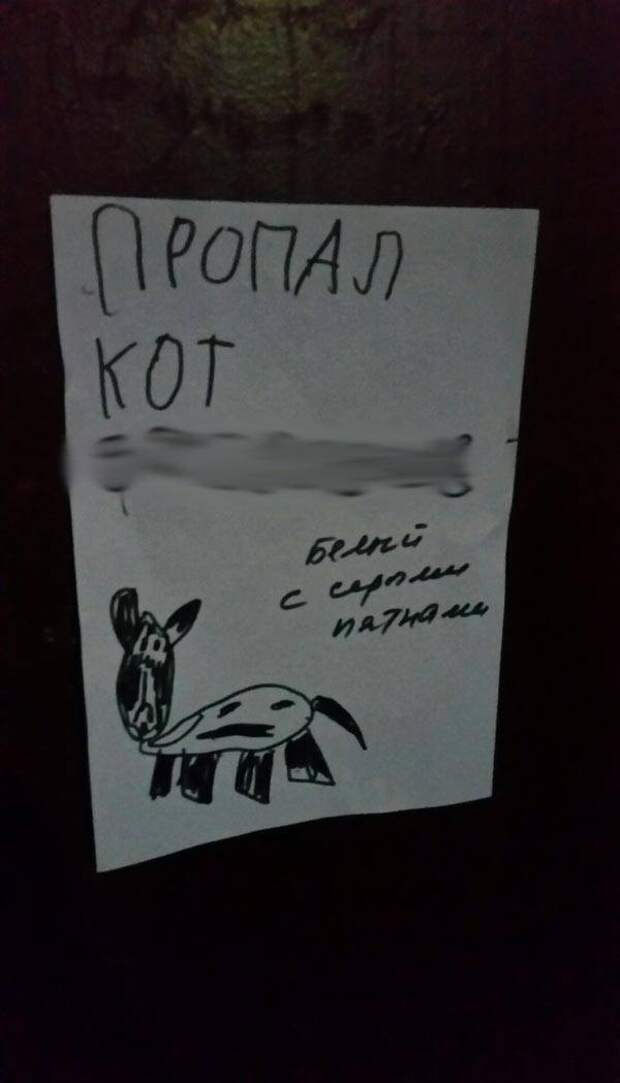 ПРОПАЛ
КОТ
Белый
с серыми
пятнами